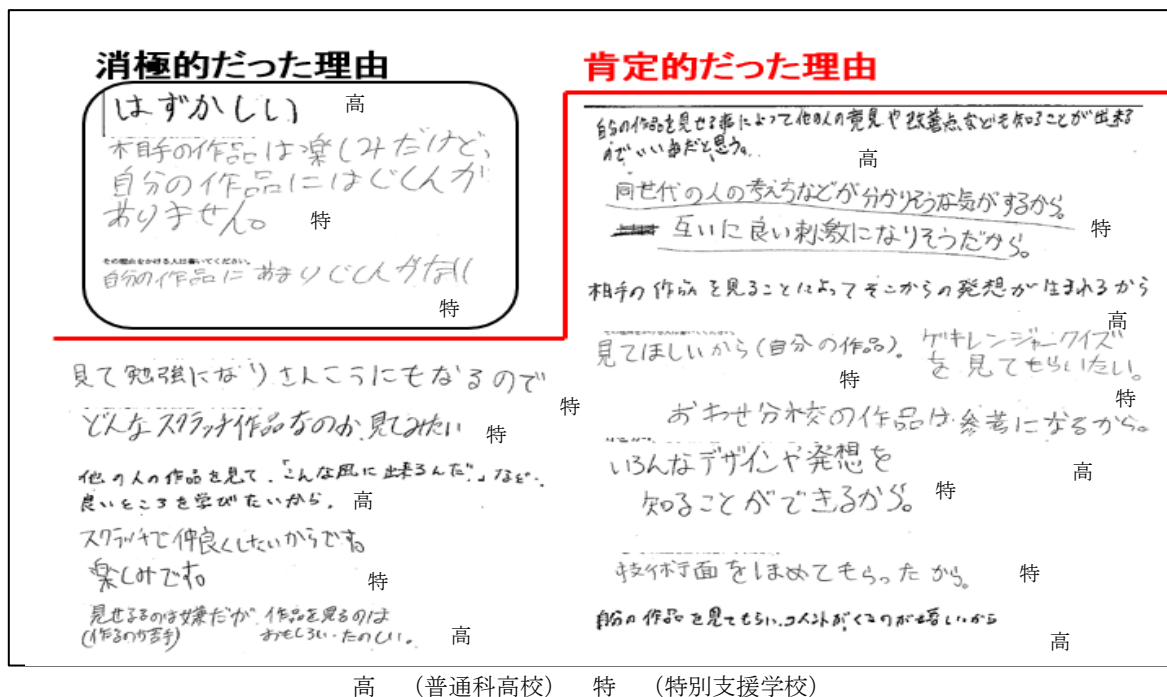 消極的だった理由
はずかしい 高
相手の作品は楽しみだけど、
自分の作品にはじしんが
ありません。 特
その理由をかける人は書いてください。
自分の作品に あまりじしんがない
特
見て勉強になりさんこうにもなるので
特
どんなスクラッチ作品なのか見てみたい 特
他の人の作品を見て、「こんな風に出来るんだ」など、
良いところを学びたいから。 高
スクラッチで仲良くしたいからです。
楽しみです。 特
見せるのは嫌だが 作品を見るのは
(作るのが苦手) おもしろい・たのしい。 高
肯定的だった理由
自分の作品を見せる事によって他の人の意見や改善点なども知ることが出来る
のでいい事だと思う。 高
同世代の人の考えなどが分かりそうな気がするから。
互いに良い刺激になりそうだから。 特
相手の作品を見ることによってそこからの発想が生まれるから
高
見てほしいから(自分の作品)。 特
ゲキレンジャークイズ
を見てもらいたい。
特
おわせ分校の作品は参考になるから。
高
いろんなデザインや発想を
知ることができるから。 特
技術面をほめてもらったから。 特
自分の作品を見てもらい、コメントがくるのが嬉しいから
高
高 (普通科高校) 特 (特別支援学校)